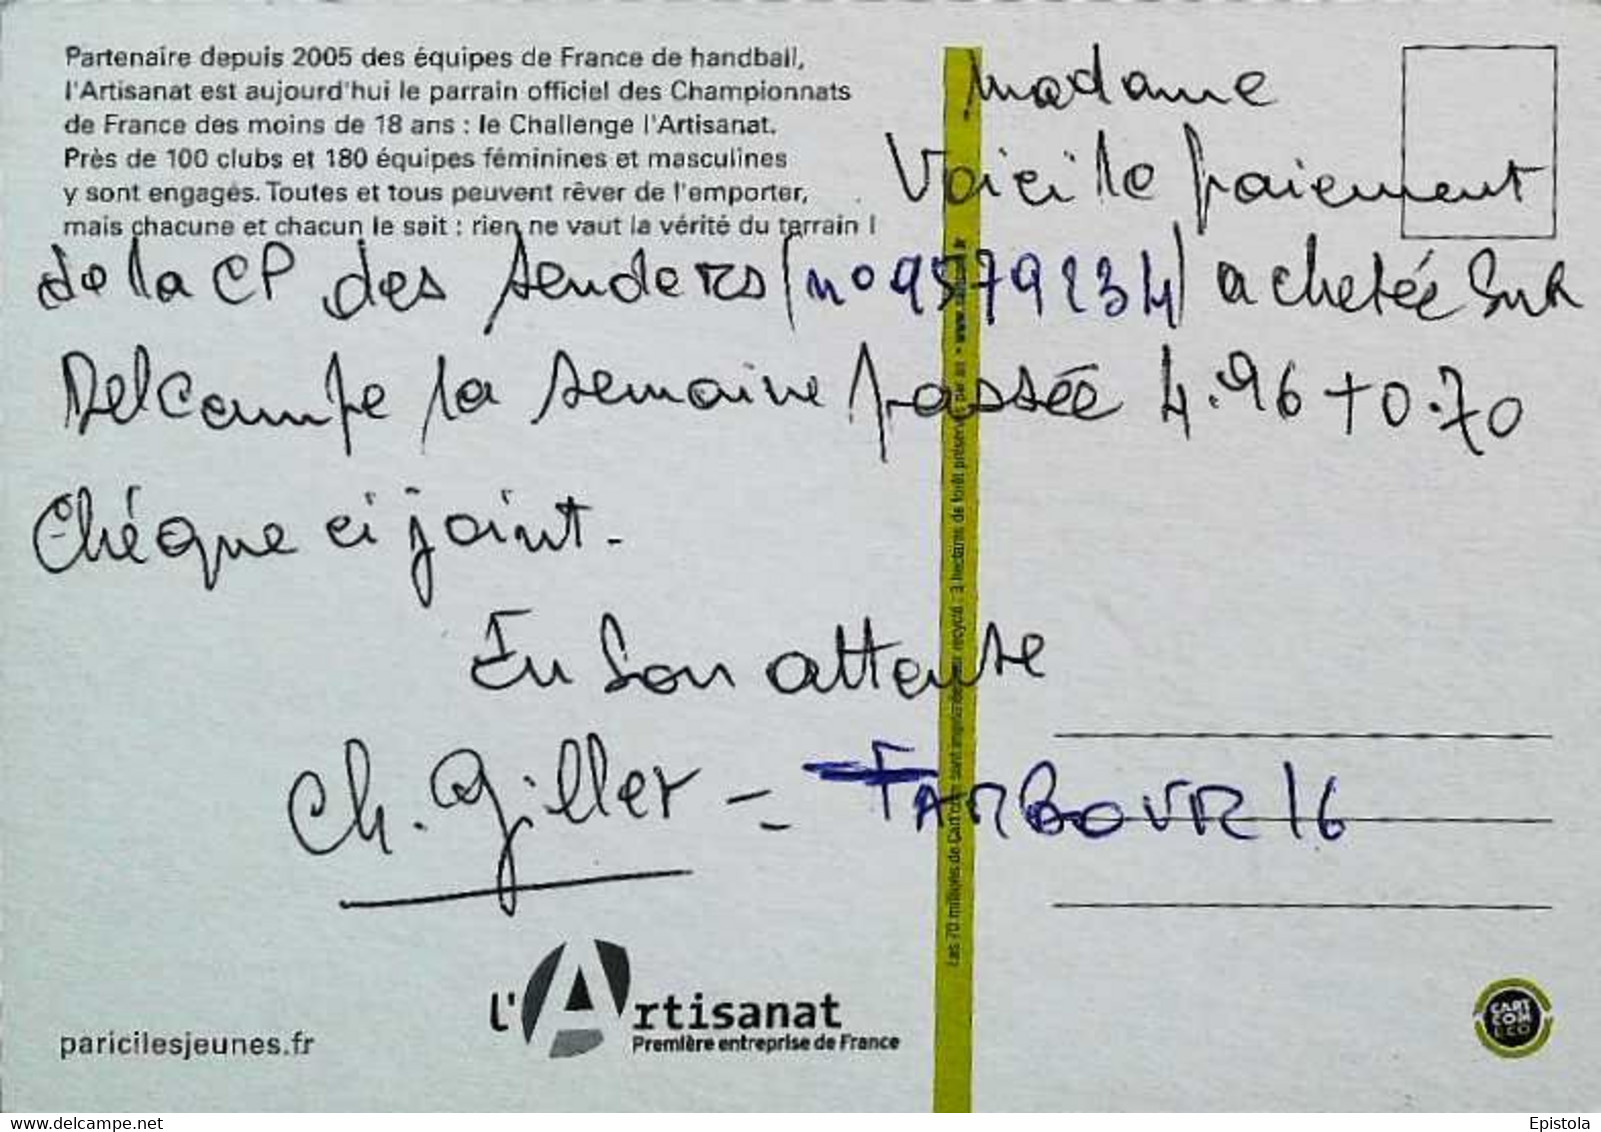 Partenaire depuis 2005 des équipes de France de handball,
l'Artisanat est aujourd'hui le parrain officiel des Championnats
de France des moins de 18 ans : le Challenge l'Artisanat.
Près de 100 clubs et 180 équipes féminines et masculines
y sont engagés. Toutes et tous peuvent rêver de l'emporter,
mais chacune et chacun le sait : rien ne vaut la vérité du terrain !
Madame
Voici le paiement
de la CP des Senders (no 9579234) achetée sur
Delcampe la semaine passée 4.96 + 0.70
Chéque ci joint.
En son attente
Ch. Gillet = FARBOUR 16
l'Artisanat
Première entreprise de France
paricilesjeunes.fr
CART
COM
ECO
delcampe.net
Epistola